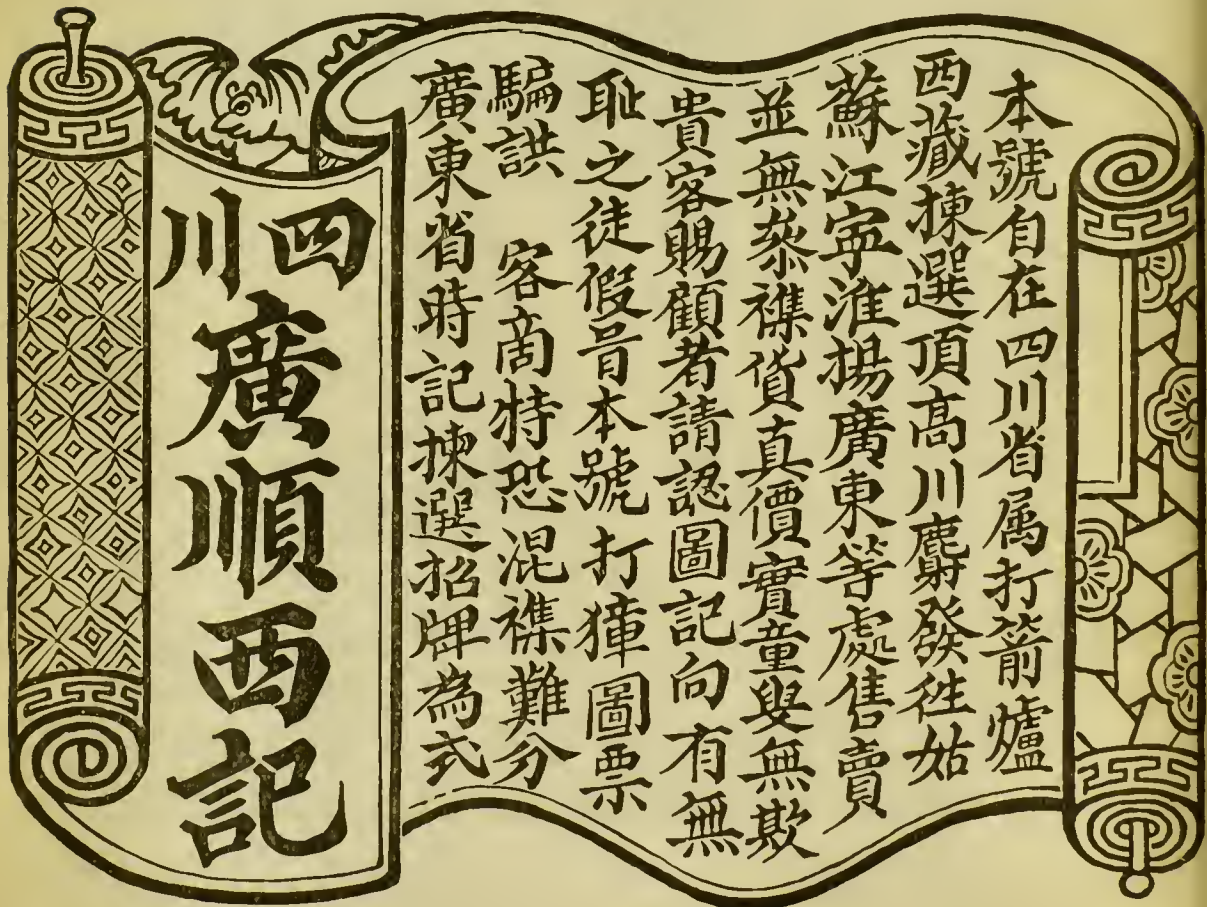 本號自在四川省属打箭爐
西藏揀選頂高川麝發徃姑
蘇江寕淮揚廣東等處售賣
並無叅襍貨真價實童叟無欺
貴客賜顧者請認圖記向有無
耻之徒假冒本號打獐圖票
騙誆 客商特恐混襍難分
廣東省時記揀選招牌為式
四川
廣順西記